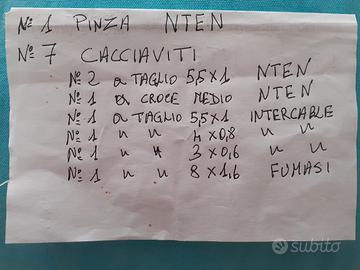 Nº 1 PINZA NTEN
Nº 7 CACCIAVITI
Nº 2 a TAGLIO 5,5x1 NTEN
Nº 1 a CROCE MEDIO NTEN
Nº 1 a TAGLIO 5,5x1 INTERCABLE
Nº 1 " " 4x0,8 " "
Nº 1 " " 3x0,6 " "
Nº 1 " " 8x1,6 FUMASI
subito